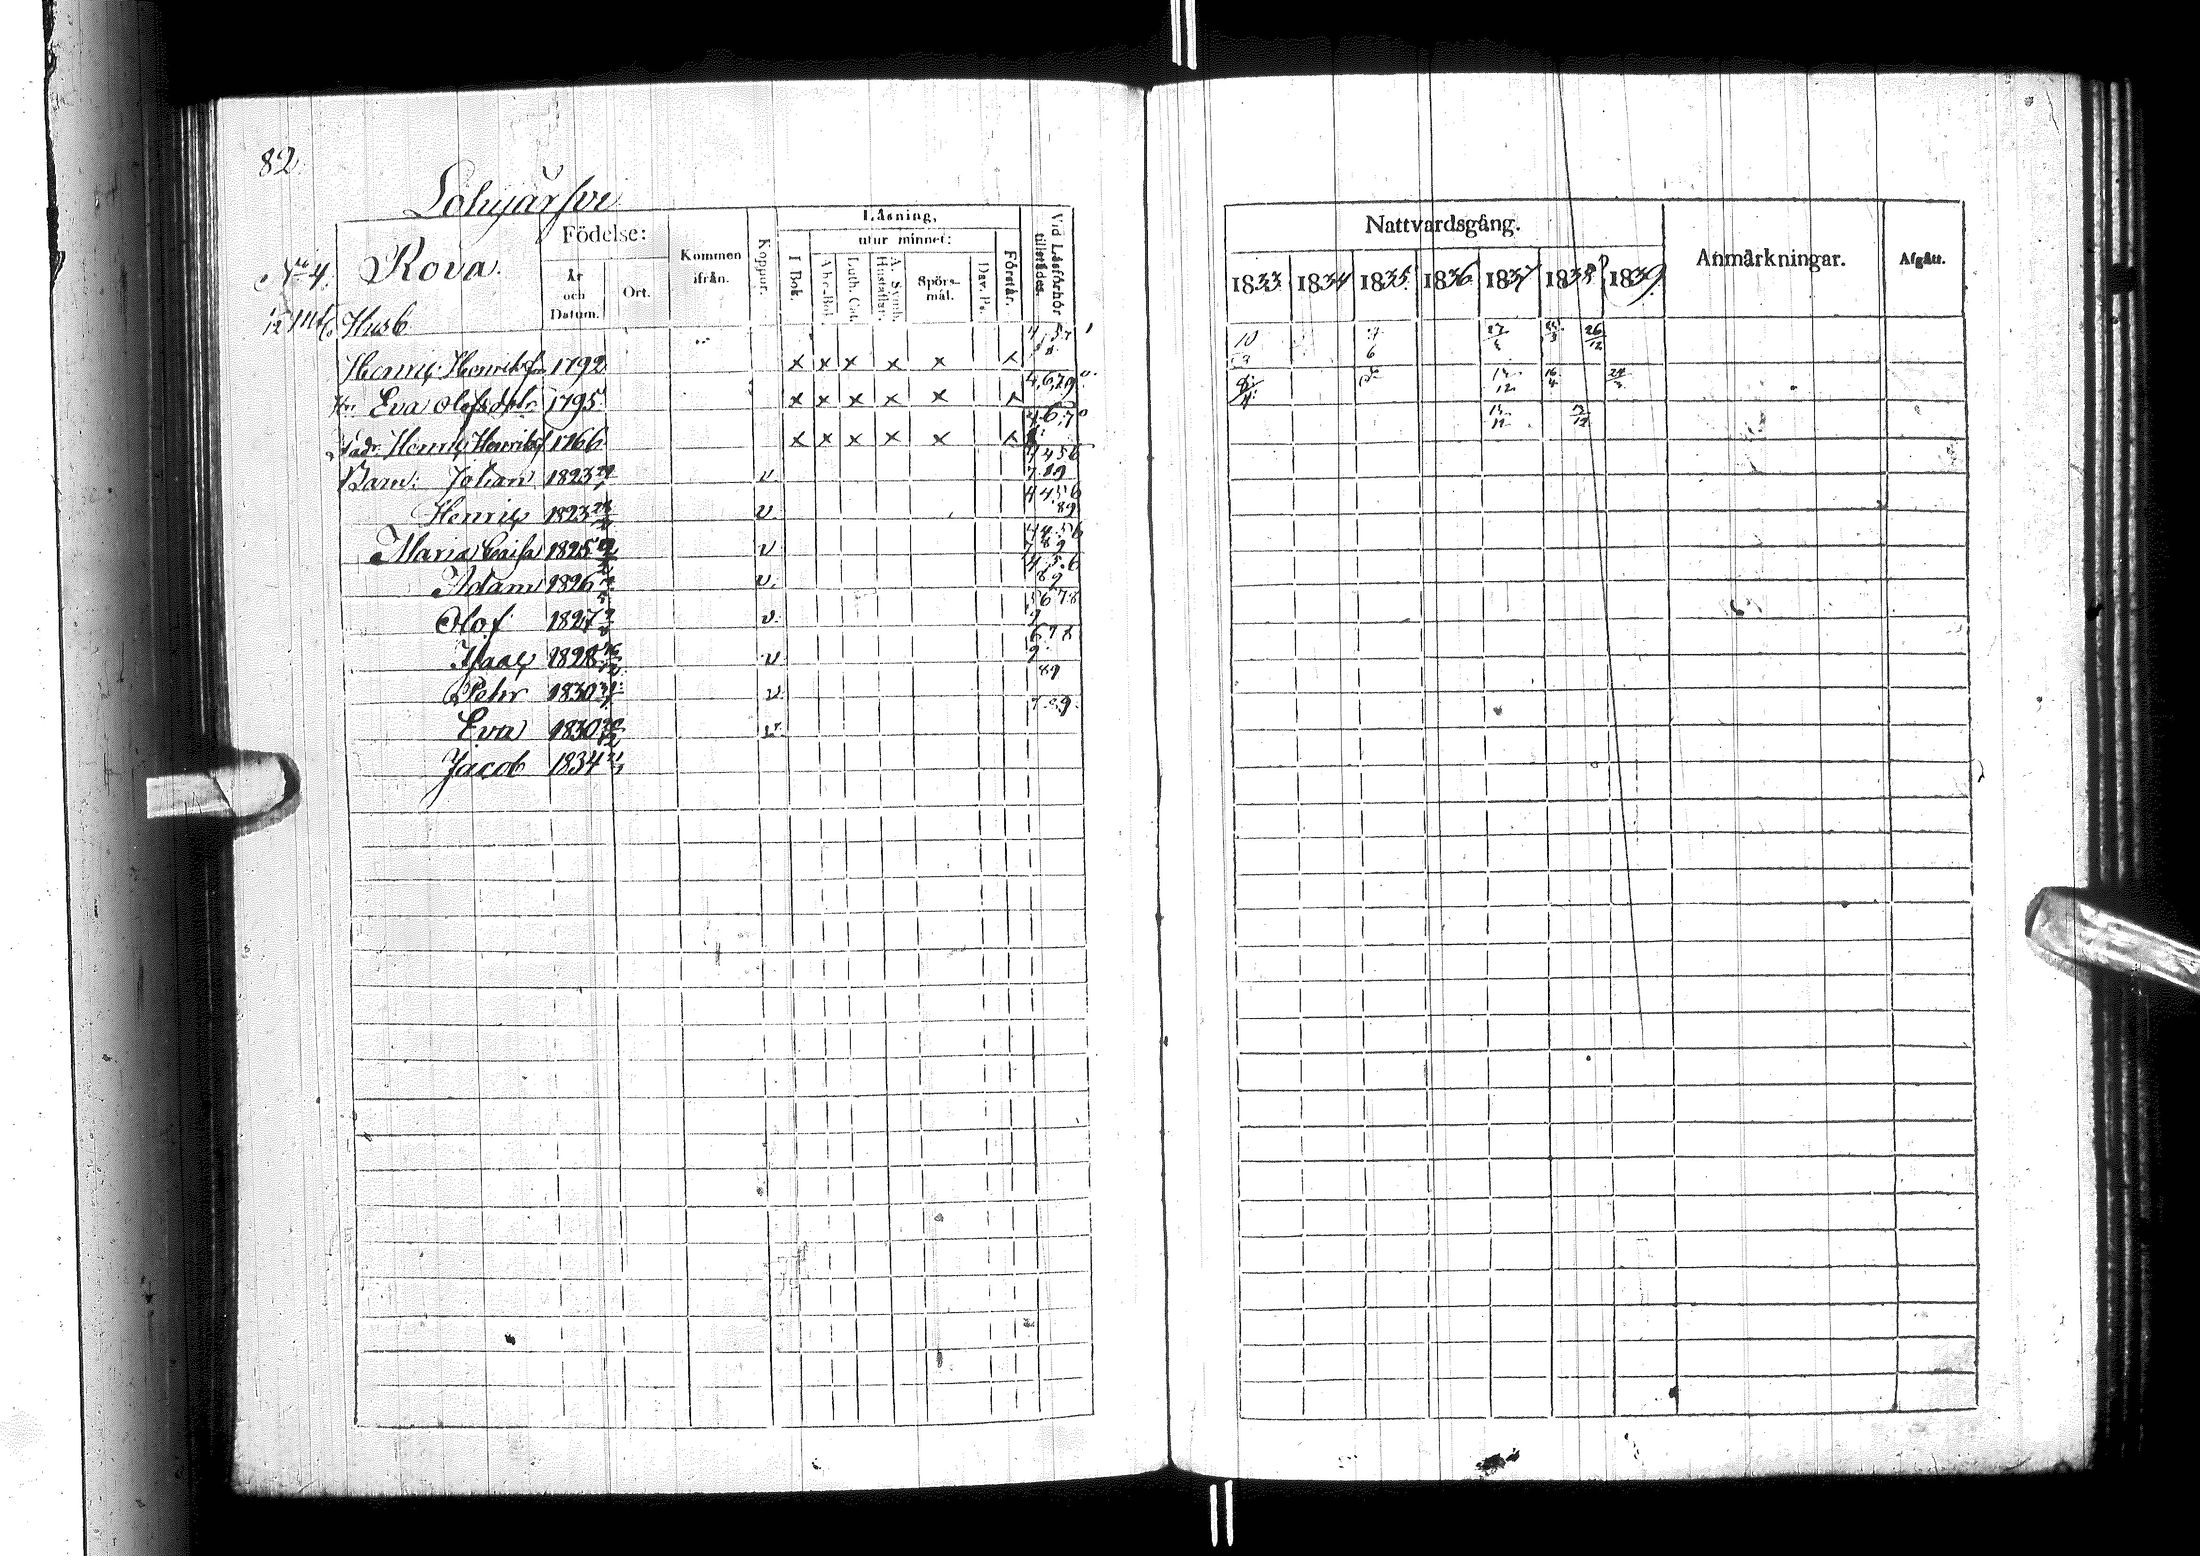 82.
Lohijärfvi
No 4. Kova.
1/12 Mtl. Husb
Födelse:
År och Datum.
Ort.
Kommen ifrån.
Koppor.
Läsning,
utur minnet:
I Bok.
Abc-Bok.
Luth. Cat.
A. Symb. Hustaflar.
Spörs-mål.
Dav. Ps.
Förstår.
Vid Läsförhör tillstädes.
Henric Henriksson 1792 x x x x x x
Hu. Eva Olofsdotr 1795 x x x x x x 4,6,7,9
Fadr. Henric Henriksn 1766 x x x x x x 4,6,7
Barn: Johan 1823 v 4 4 5 6 7 8 9
Henric 1823 v 4 4 5 6 8 9
Maria Caisa 1825 v 4 4 5 6 7 8 9
Adam 1826 v. 4 5 6 8 9
Olof 1827 v. 5 6 7 8 9
Isaac 1828 v 6 7 8 9
Pehr 1830 v 8 9
Eva 1830 v. 7 8 9
Jacob 1834
Nattvardsgång.
Anmärkningar.
Afgått.
1833 1834 1835 1836 1837 1838 1839
26/12